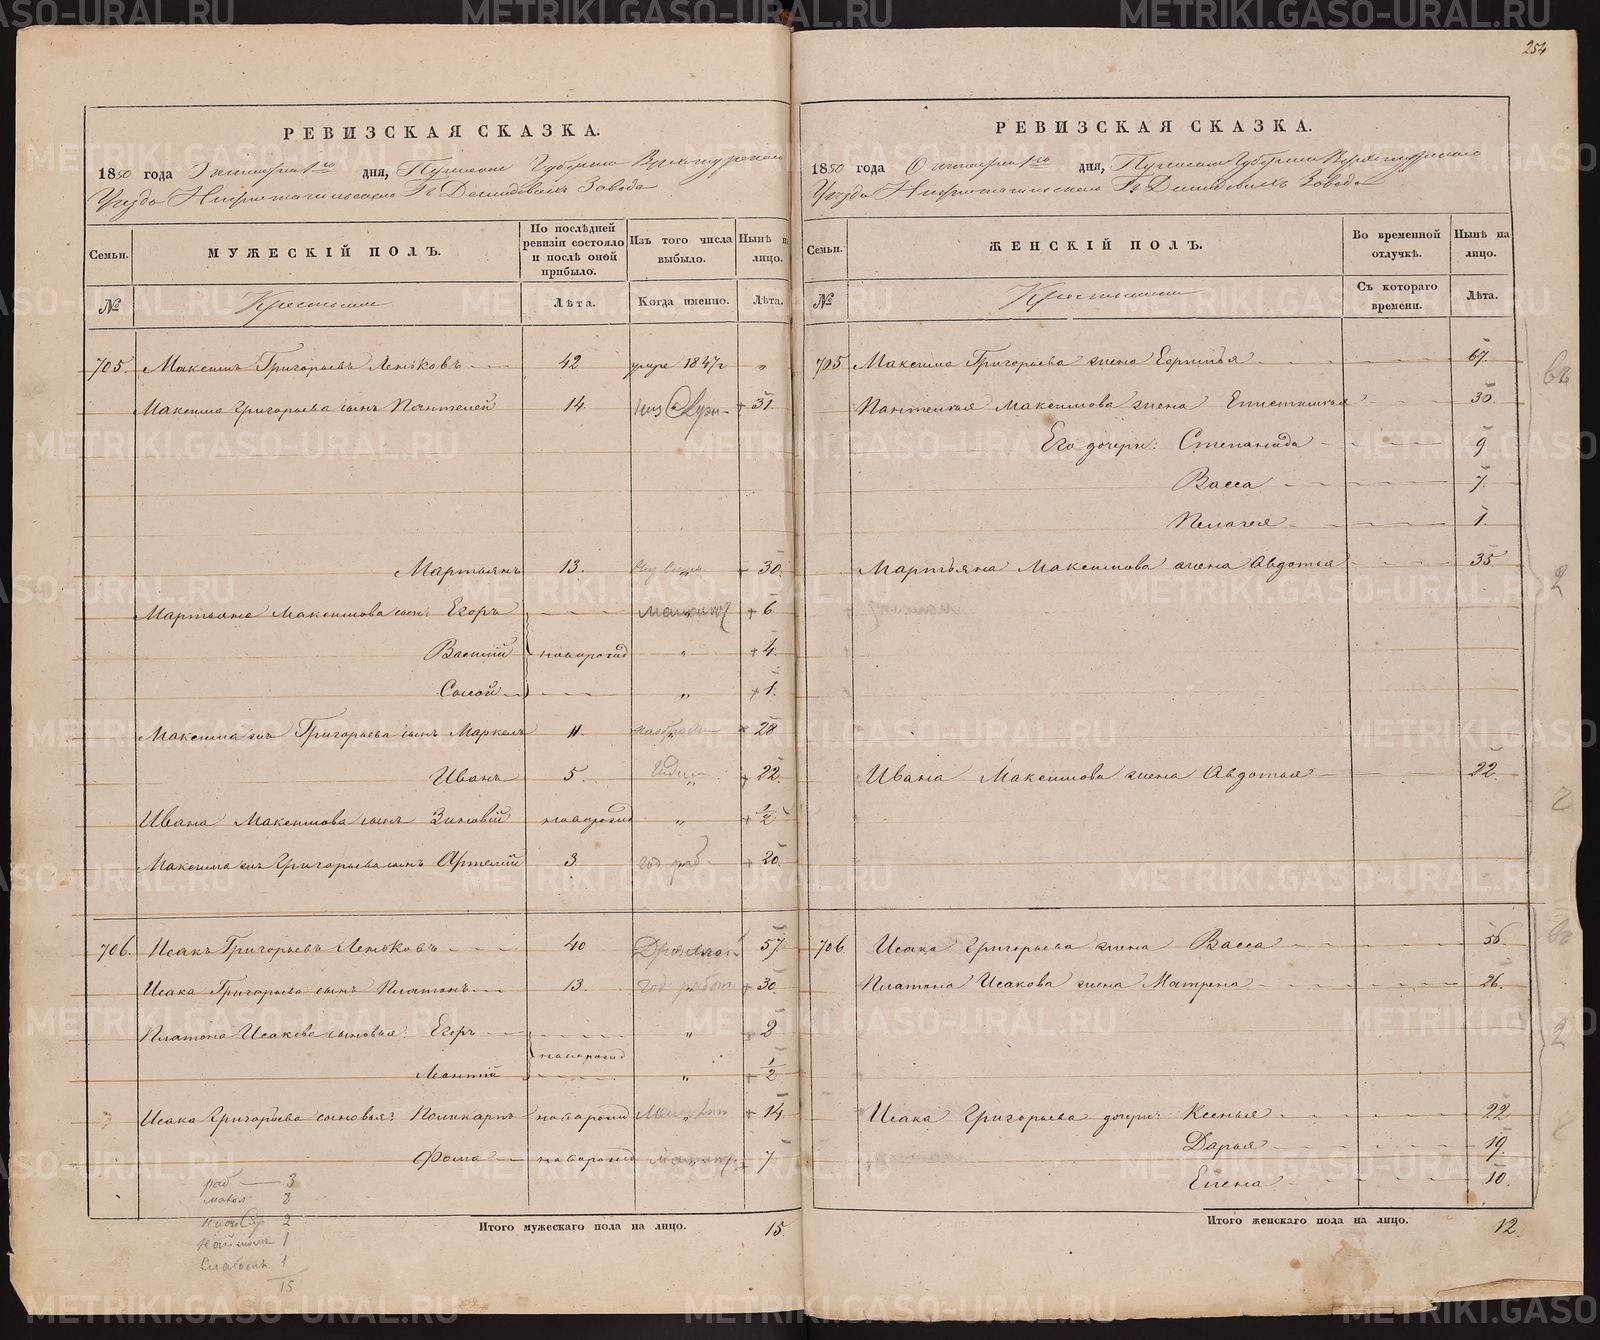 254
РЕВИЗСКАЯ СКАЗКА.
1850 года Октября 1го дня, Пермской Губернии Верхотурского
Уезда Нижнетагильского Гг Демидовыхъ Завода
Семьи. МУЖЕСКІЙ ПОЛЪ. По послѣдней ревизіи состояло и послѣ оной прибыло. Изъ того числа выбыло. Нынѣ на лицо.
№ Крестьяне Лѣта. Когда именно. Лѣта.
705. Максимъ Григорьевъ Леньковъ 42 умре 1847г "
Максима Григорьева сынъ Пантелей 14. 31.
Мартьянъ 13. " 30.
Мартьяна Максимова сын: Егоръ " 6
Василій новорожд " 4.
Сысой " 1.
Максима жъ Григорьева сынъ Маркелъ 11. " 28
Иванъ 5. " 22.
Ивана Максимова сынъ Зиновій новорожд " 1/2
Максима жъ Григорьева сынъ Артемій 3 год раб. 20.
706. Исакъ Григорьевъ Леньковъ 40 57.
Исака Григорьева сынъ Платонъ 13. год работ. 30.
Платона Исакова сыновья: Егоръ " 2
новорожд
Леонтій " 1/2
Исака Григорьева сыновья: Поликарпъ новорожд " 14.
Фома новорожд " 7
раб 3
8
2
1
1
15
Итого мужескаго пола на лицо. 15.
РЕВИЗСКАЯ СКАЗКА.
1850 года Октября 1го дня, Пермской Губернии Верхотурского
Уезда Нижнетагильского Гг Демидовыхъ Завода
Семьи. ЖЕНСКІЙ ПОЛЪ. Во временной отлучкѣ. Нынѣ на лицо.
№ Крестьянки Съ котораго времени. Лѣта.
705 Максима Григорьева жена 67.
Пантелея Максимова жена Епистимия 30.
Его дочери: Степанида 9
Васса 7.
Пелагея 1.
Мартьяна Максимова жена Авдотья 35.
2
Ивана Максимова жена Авдотья 22.
2
706. Исака Григорьева жена Васса 56.
Платона Исакова жена Матрена 26.
2
Исака Григорьева дочери: Ксенья 22
Дарья 19.
Елена 10.
2
Итого женскаго пола на лицо. 12.
METRIKI.GASO-URAL.RU